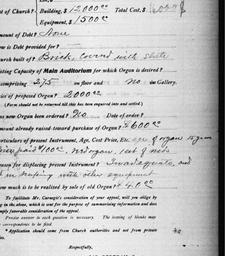 of Church? { Building, $ 12000.00 Total Cost, $
Equipment, $ 1500.00
Amount of Debt? None
ow is Debt provided for?
Church built of? Brick, covered with slate
Seating Capacity of Main Auditorium for which Organ is desired?
comprising 275 on floor and No in Gallery.
Price of proposed Organ? 2000.00
(Form should not be returned till this has been enquired into and settled)
new Organ been Ordered? No Date of order?
Amount already raised toward purchase of Organ? $600.00
Particulars of present Instrument, Age, Cost Price, Etc. age of organ
paid $100.00
Reason for displacing present Instrument? Inadequate, and
with other equipment
How much is to be realized by sale of old Organ? $40.00
To facilitate Mr. Carnegie's consideration of your appeal, will you oblige by
in the above, which is sent for the purpose of summarizing information and does
imply favorable consideration of the appeal.
Precise answer to each question is necessary. The leaving of blanks may
correspondence to be filed.
Application should come from Church authorities and not from private
Respectfully,